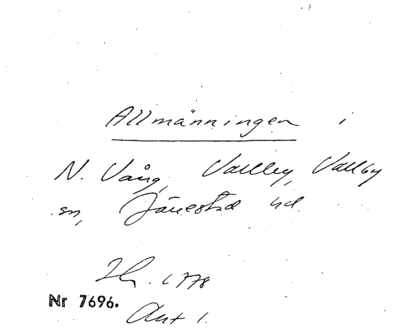 Allmänningen i
N. Vång, Vallby, Vallby
sn, Järrestad hd.
Lh. 1778
Nr 7696.
Akt 1.